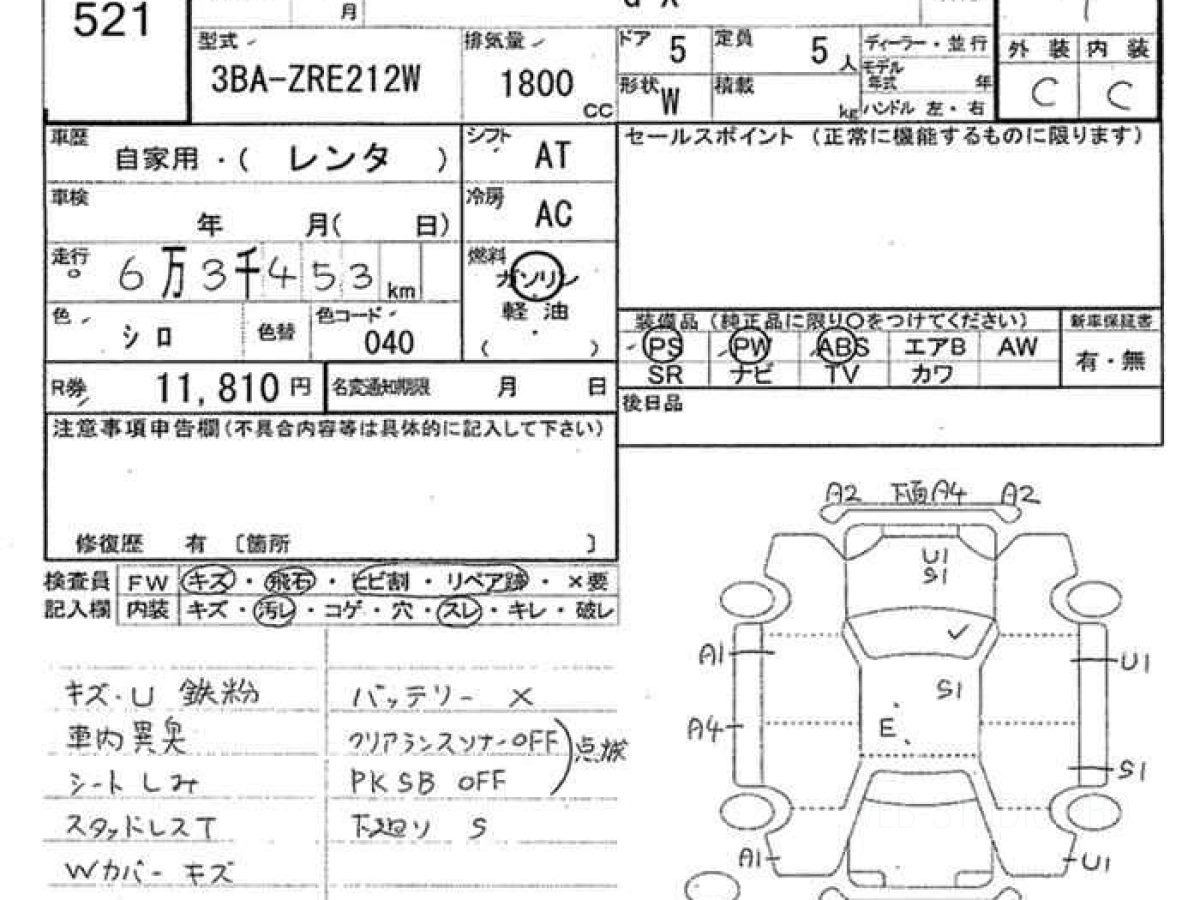 521
月
G X
型式
3BA-ZRE212W
排気量
1800 CC
ドア 5
定員 5 人
ディーラー・並行
モデル年式 年
ハンドル 左・右
形状 W
積載 kg
外装 内装
C C
車歴 自家用・( レンタ )
シフト AT
車検 年 月( 日)
冷房 AC
走行 6万3千453 km
燃料 ガソリン
軽油
( )
色 シロ
色替
色コード 040
R券 11,810 円
名変通知期限 月 日
セールスポイント (正常に機能するものに限ります)
装備品 (純正品に限り○をつけてください)
新車保証書
PS PW ABS エアB AW
有・無
SR ナビ TV カワ
後日品
注意事項申告欄(不具合内容等は具体的に記入して下さい)
修復歴 有 〔箇所 〕
検査員 FW キズ・飛石・ヒビ割・リペア跡・×要
記入欄 内装 キズ・汚レ・コゲ・穴・スレ・キレ・破レ
キズ・U 鉄粉
車内異臭
シートしみ
スタッドレスT
Wカバー キズ
バッテリー ×
クリアランスソナーOFF
PKSB OFF
点滅
下廻り S
A2 下面A4 A2
U1
S1
A1
U1
S1
A4
E
S1
A1
U1